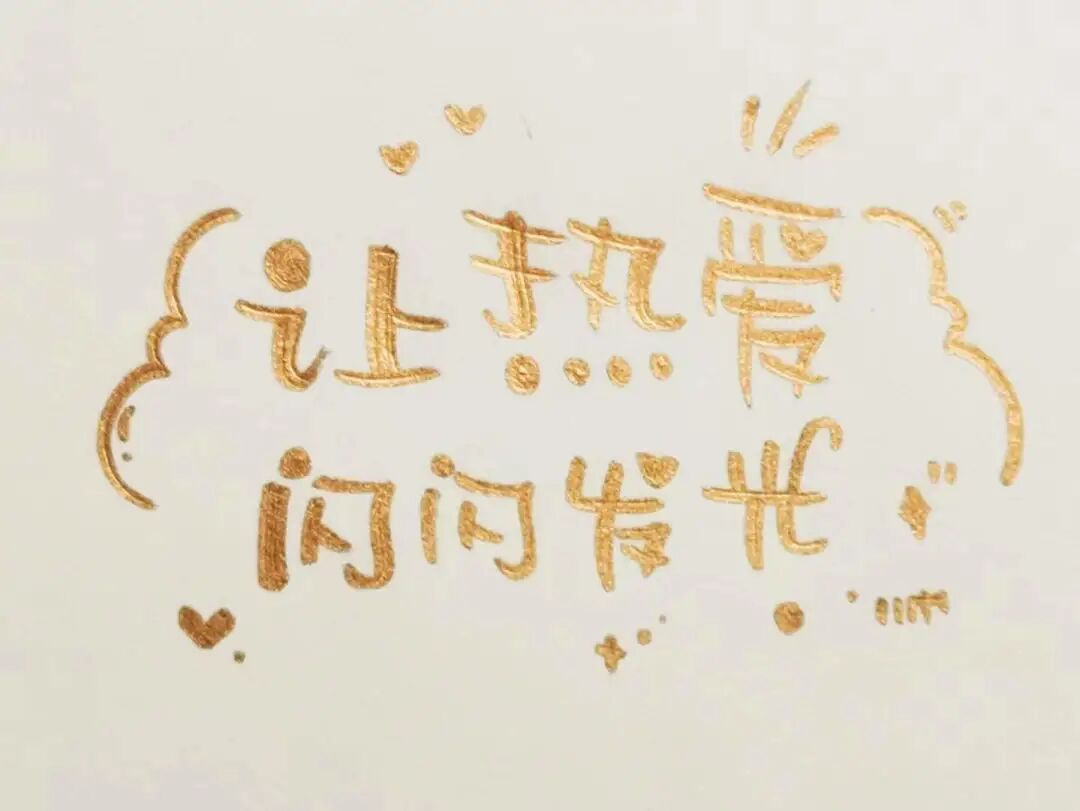 让热爱
闪闪发光